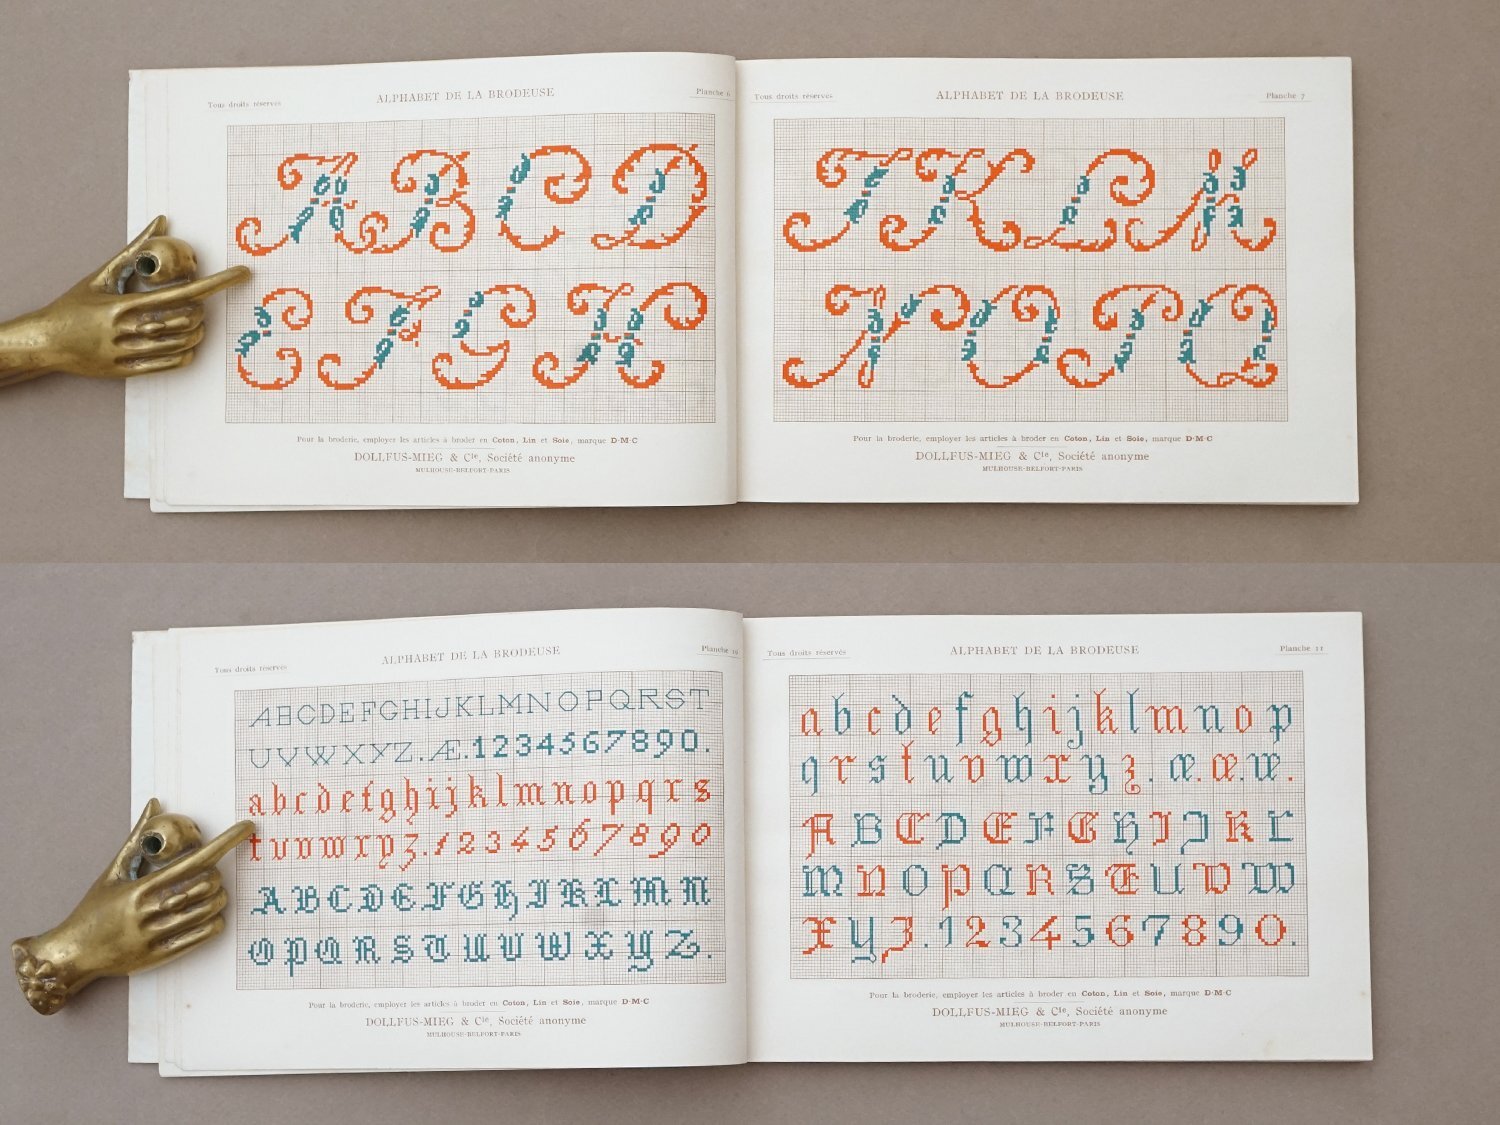 Tous droits réservés ALPHABET DE LA BRODEUSE Planche 6
A B C D
E F G H
Pour la broderie, employer les articles à broder en Coton, Lin et Soie, marque D·M·C
DOLLFUS-MIEG & Cie, Société anonyme
MULHOUSE-BELFORT-PARIS
Tous droits réservés ALPHABET DE LA BRODEUSE Planche 7
I K L M
N O P Q
Pour la broderie, employer les articles à broder en Coton, Lin et Soie, marque D·M·C
DOLLFUS-MIEG & Cie, Société anonyme
MULHOUSE-BELFORT-PARIS
Tous droits réservés ALPHABET DE LA BRODEUSE Planche 10
ABCDEFGHIJKLMNOPQRST
UVWXYZ.Æ.1234567890.
abcdefghijklmnopqrs
tuvwxyz.1234567890
ABCDEFGHIKLMN
OPQRSTUVWXYZ.
Pour la broderie, employer les articles à broder en Coton, Lin et Soie, marque D·M·C
DOLLFUS-MIEG & Cie, Société anonyme
MULHOUSE-BELFORT-PARIS
Tous droits réservés ALPHABET DE LA BRODEUSE Planche 11
abcdefghijklmnop
qrstuvwxyz. œ.œ.æ.
ABCDEFGHIJKL
MNOPQRSTUVW
XYZ.1234567890.
Pour la broderie, employer les articles à broder en Coton, Lin et Soie, marque D·M·C
DOLLFUS-MIEG & Cie, Société anonyme
MULHOUSE-BELFORT-PARIS